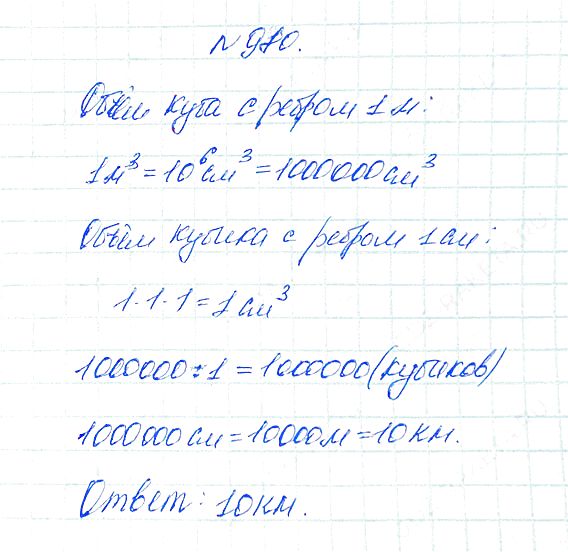 № 980.
Объём куба с ребром 1 м:
1м³ = 10⁶см³ = 1000000см³
Объём кубика с ребром 1см:
1·1·1 = 1см³
1000000:1 = 1000000(кубиков)
1000000см = 10000м = 10км.
Ответ: 10км.